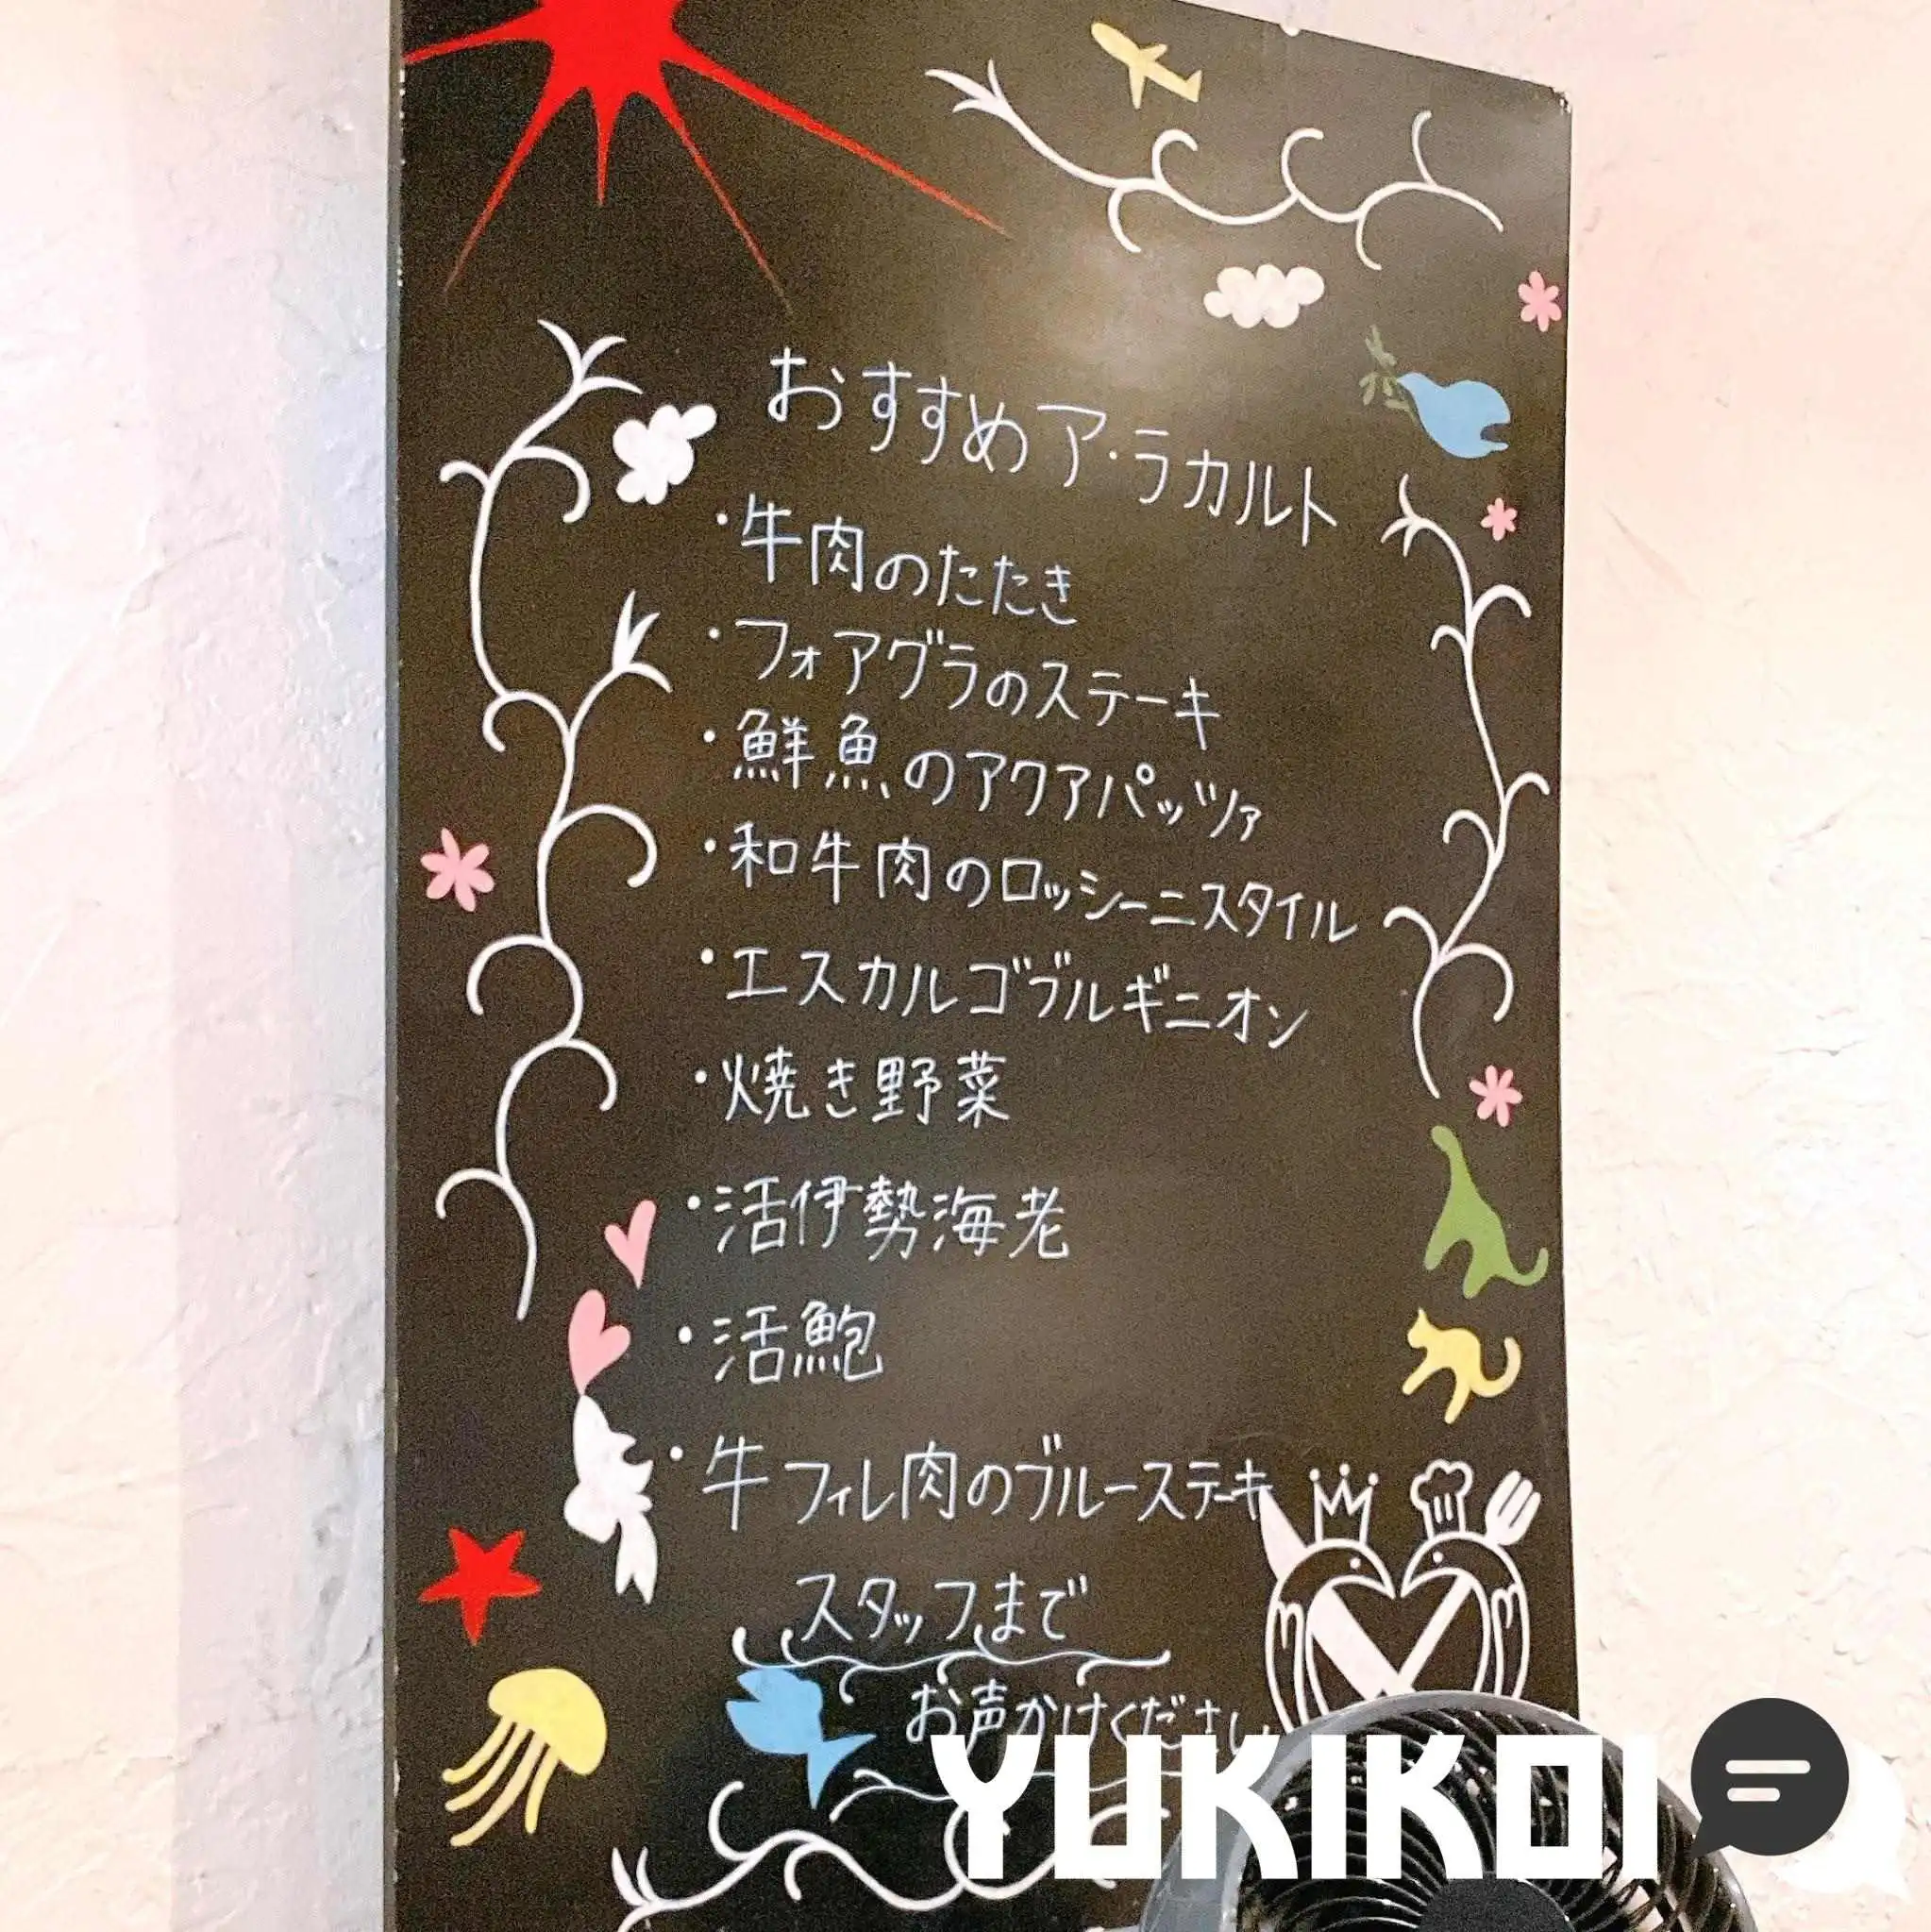 おすすめア・ラカルト
・牛肉のたたき
・フォアグラのステーキ
・鮮魚のアクアパッツァ
・和牛肉のロッシーニスタイル
・エスカルゴブルギニオン
・焼き野菜
・活伊勢海老
・活鮑
・牛フィレ肉のブルーステーキ
スタッフまで
お声かけください
YUKIKOI